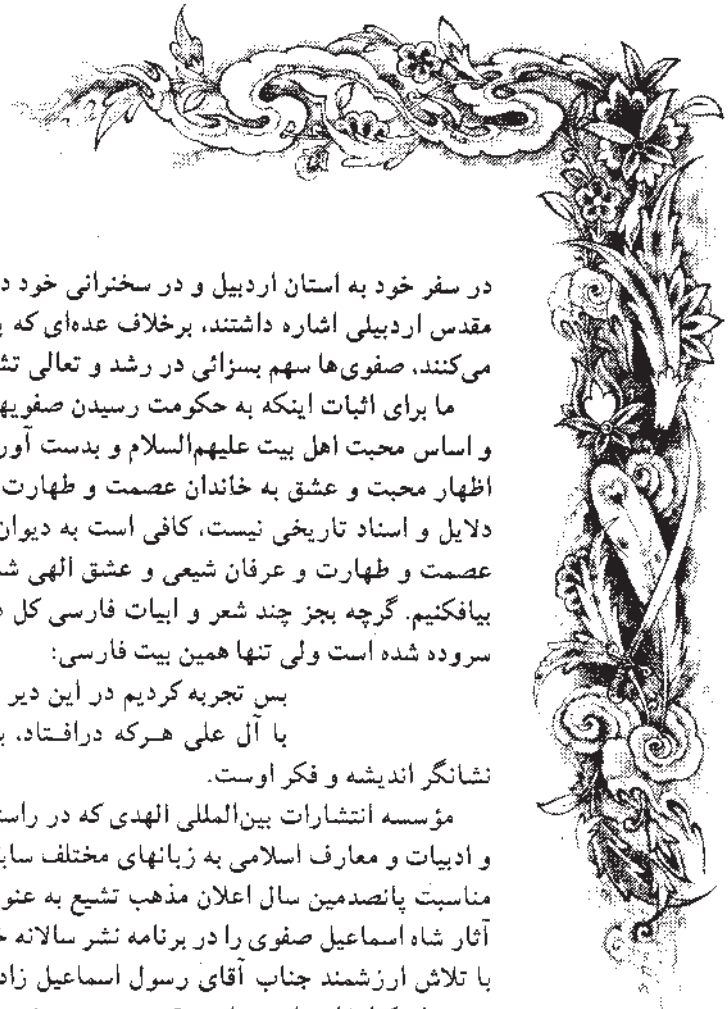 در سفر خود به استان اردبیل و در سخنرانی خود د
مقدس اردبیلی اشاره داشتند، برخلاف عده‌ای که ب
می‌کنند، صفوی‌ها سهم بسزائی در رشد و تعالی تش
ما برای اثبات اینکه به حکومت رسیدن صفویه
و اساس محبت اهل بیت علیهم‌السلام و بدست آور
اظهار محبت و عشق به خاندان عصمت و طهارت
دلایل و اسناد تاریخی نیست، کافی است به دیوان
عصمت و طهارت و عرفان شیعی و عشق الهی شا
بیافکنیم. گرچه بجز چند شعر و ابیات فارسی کل د
سروده شده است ولی تنها همین بیت فارسی:
بس تجربه کردیم در این دیر
با آل علی هـرکه درافـتاد، ب
نشانگر اندیشه و فکر اوست.
مؤسسه انتشارات بین‌المللی الهدی که در راست
و ادبیات و معارف اسلامی به زبانهای مختلف ساب
مناسبت پانصدمین سال اعلان مذهب تشیع به عنو
آثار شاه اسماعیل صفوی را در برنامه نشر سالانه خ
با تلاش ارزشمند جناب آقای رسول اسماعیل زاد